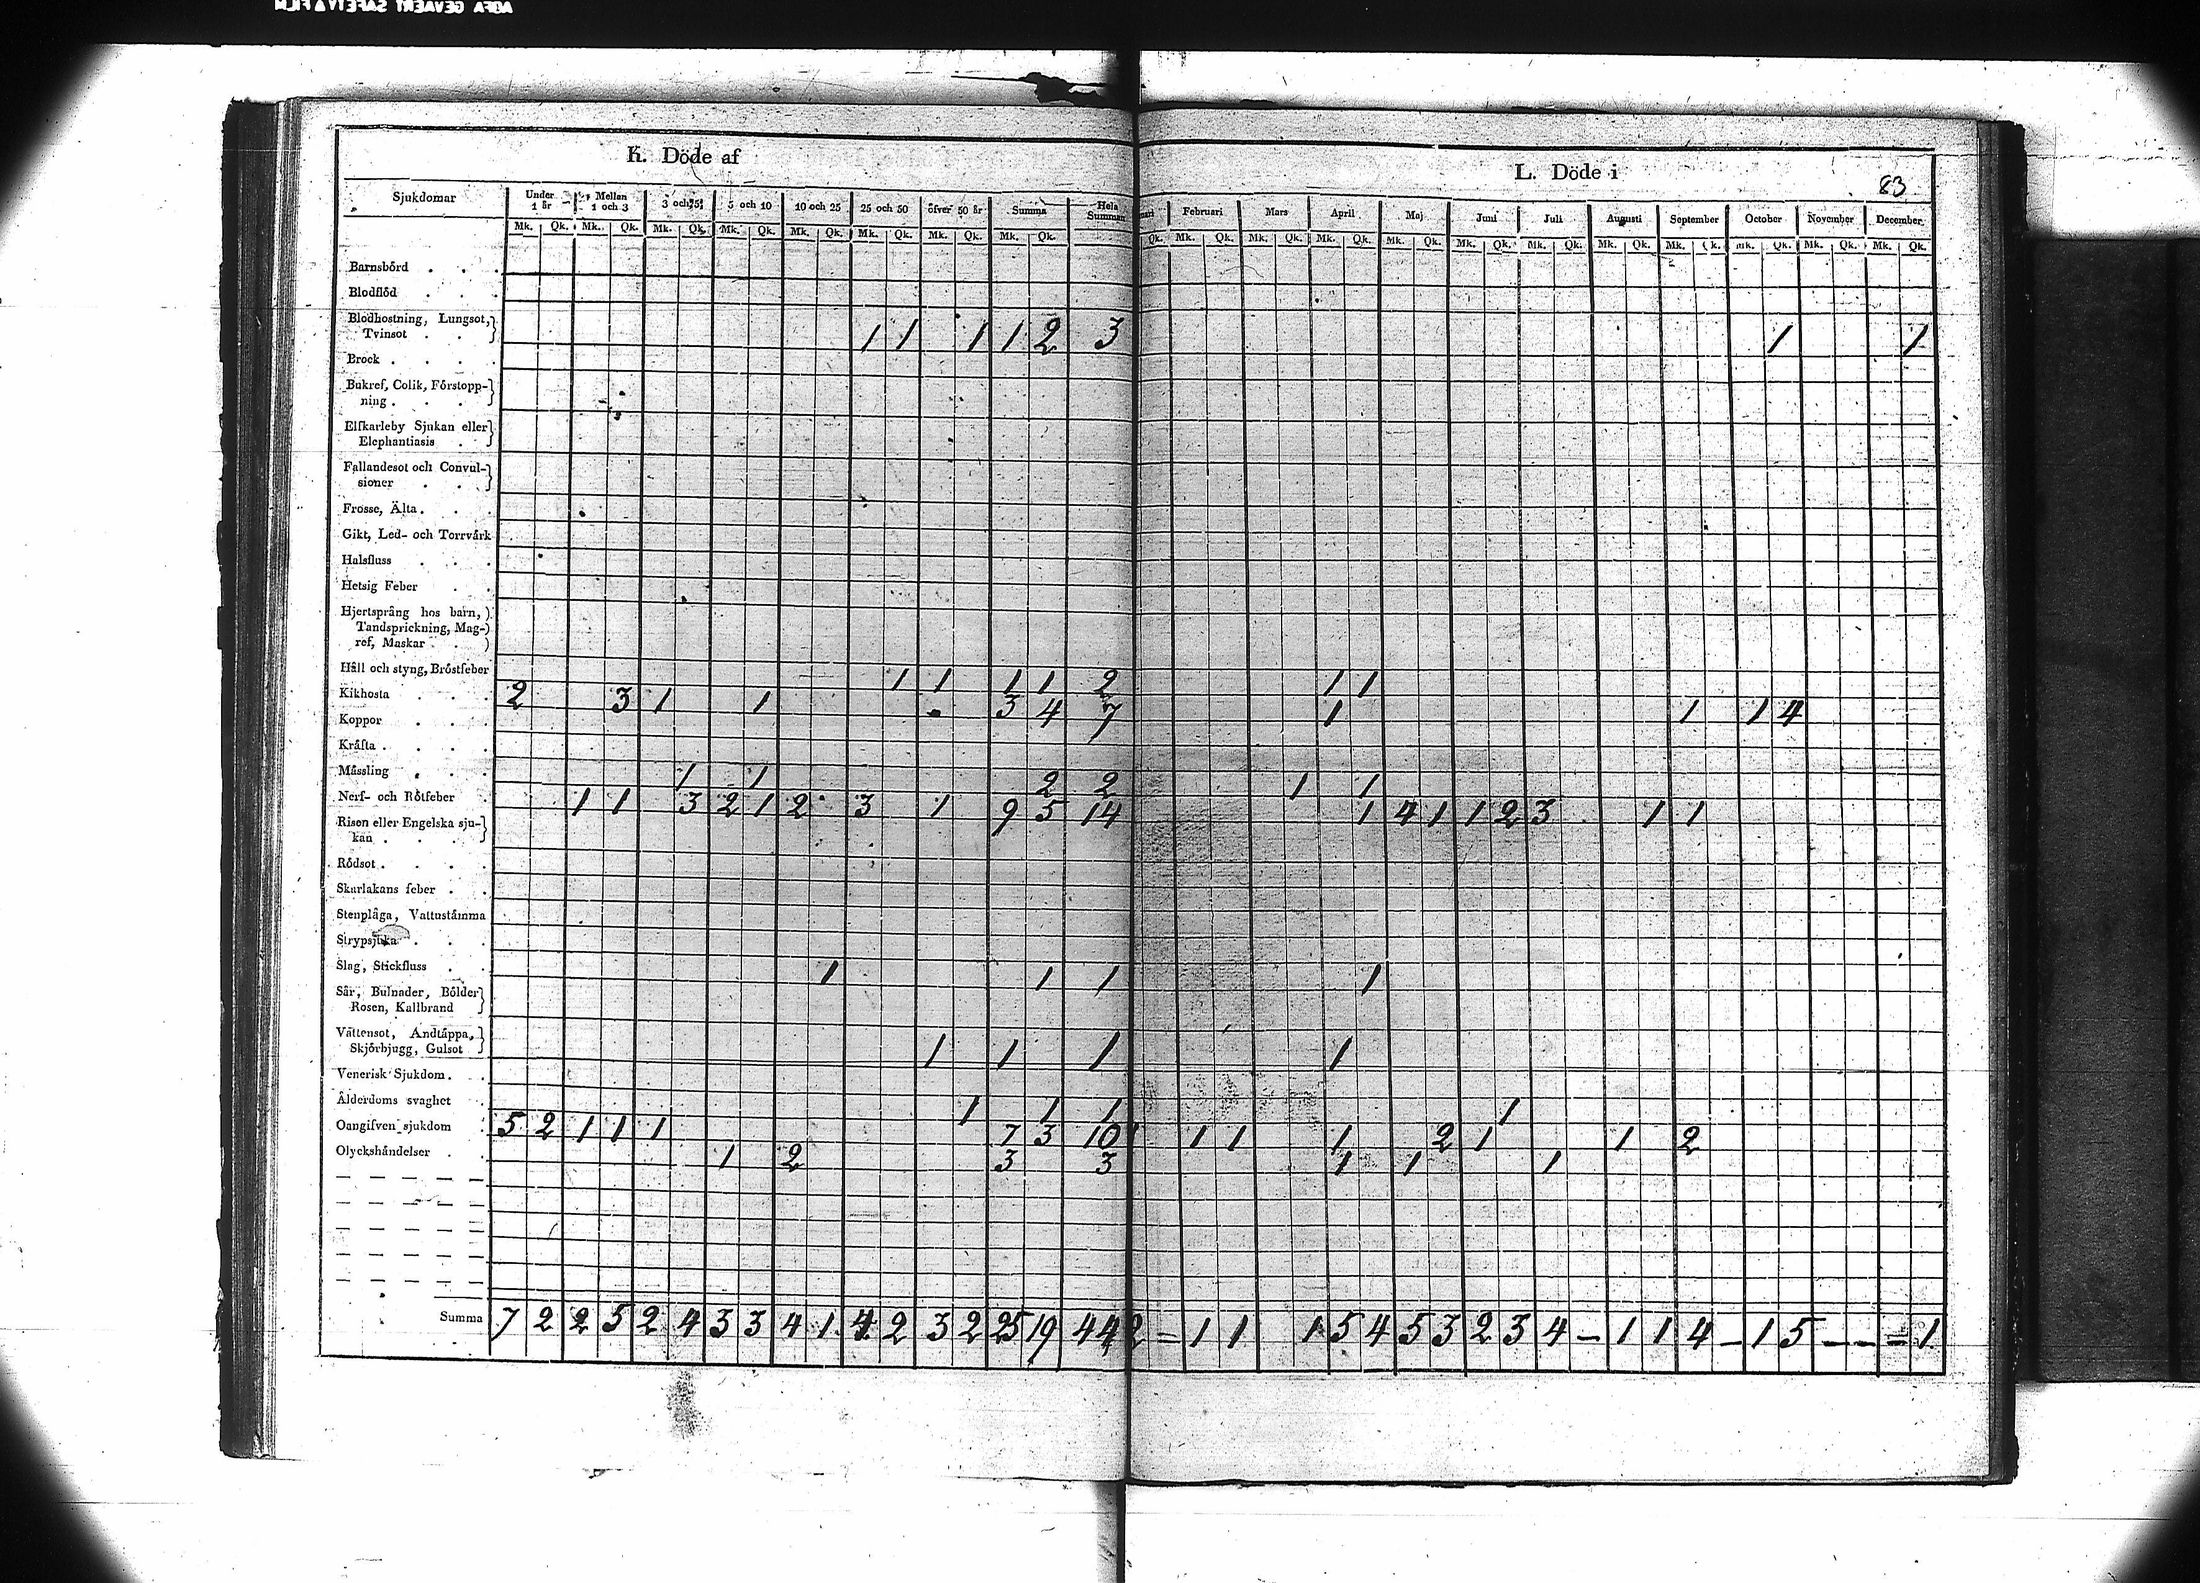 AGFA GEVAERT SAFETY FILM
K. Döde af
L. Döde i
83
Sjukdomar Under 1 år Mellan 1 och 3 3 och 5 5 och 10 10 och 25 25 och 50 öfver 50 år Summa Hela Summan Februari Mars April Maj Juni Juli Augusti September October November December
Mk. Qk. Mk. Qk. Mk. Qk. Mk. Qk. Mk. Qk. Mk. Qk. Mk. Qk. Mk. Qk. Qk. Mk. Qk. Mk. Qk. Mk. Qk. Mk. Qk. Mk. Qk. Mk. Qk. Mk. Qk. Mk. Qk. Mk. Qk. Mk. Qk. Mk. Qk.
Barnsbörd
Blodflöd
Blodhostning, Lungsot,
Tvinsot 1 1 1 1 2 3 1 1
Brock
Bukref, Colik, Förstopp-
ning
Elfkarleby Sjukan eller
Elephantiasis
Fallandesot och Convul-
sioner
Frosse, Älta
Gikt, Led- och Torrvärk
Halsfluss
Hetsig Feber
Hjertsprång hos barn,
Tandsprickning, Mag-
ref, Maskar
Håll och styng, Bröstfeber 1 1 1 1 2 1 1
Kikhosta 2 3 1 1 3 4 7 1 1 1 4
Koppor
Kräfta
Mässling 1 1 2 2 1 1
Nerf- och Rötfeber 1 1 3 2 1 2 3 1 9 5 14 1 4 1 1 2 3 1 1
Risen eller Engelska sju-
kan
Rödsot
Skarlakans feber
Stenplåga, Vattustämma
Strypsjuka
Slag, Stickfluss 1 1 1 1
Sår, Bulnader, Bölder
Rosen, Kallbrand
Vattensot, Andtäppa,
Skjörbjugg, Gulsot 1 1 1 1
Venerisk Sjukdom
Ålderdoms svaghet 1 1 1 1
Oangifven sjukdom 5 2 1 1 1 7 3 10 1 1 1 2 1 1 2
Olyckshändelser 1 2 3 3 1 1 1
Summa 7 2 2 5 2 4 3 3 4 1 4 2 3 2 25 19 44 2 = 1 1 1 5 4 5 3 2 3 4 – 1 1 4 – 1 5 – – – 1